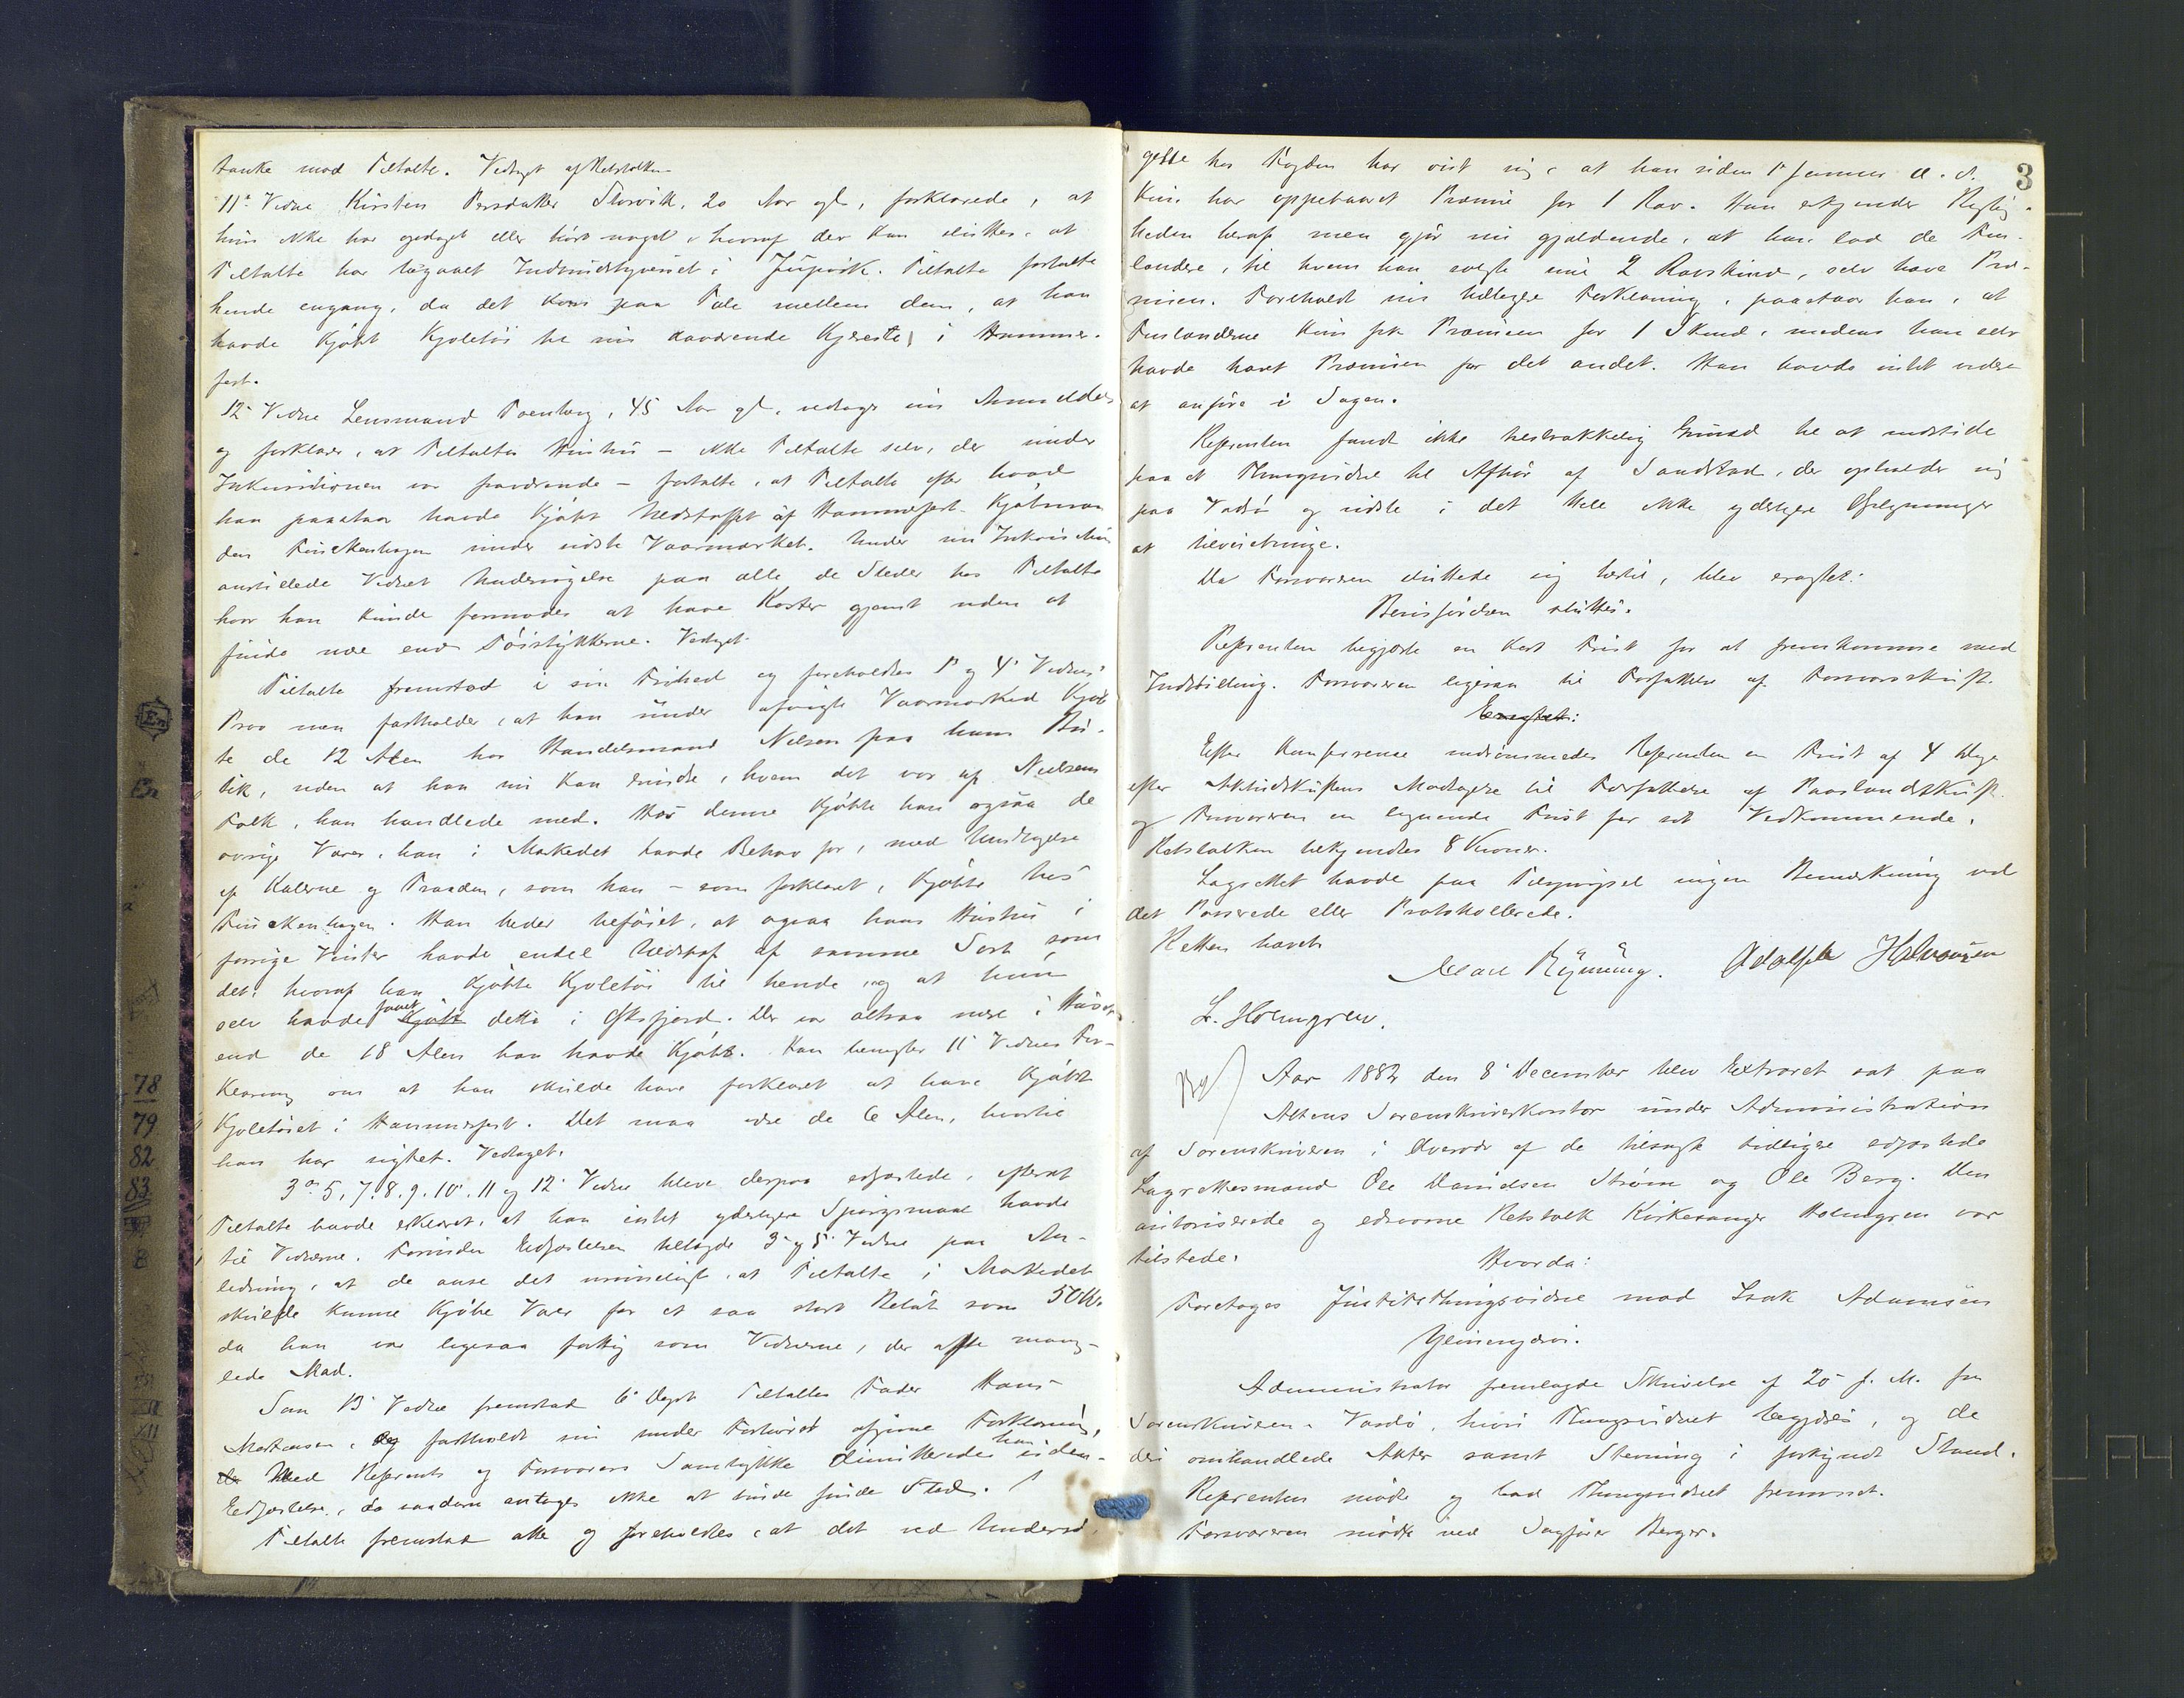 tanke mod Tiltalte. Vedtaget af Retstolken
11te Vidne Kirsten Persdatter Storvik, 20 Aar gl., forklarede, at
hun ikke har opdaget eller hørt noget, hvoraf der kan sluttes, at
Tiltalte har begaaet Indbrudstyveriet i Jupvik. Tiltalte fortalte
hende engang, da det kom paa Tale mellem dem, at han
havde kjøbt Kjoletøi til sin daværende Kjæreste i Hammer-
fest.
12te Vidne Lensmand Foenberg, 45 Aar gl., vedtager sin Anmeldelse
og forklarer, at Tiltaltes Hustru – ikke Tiltalte selv, der under
Inkvisitionen var fraværende – fortalte, at Tiltalte efter hvad
han paastaar havde kjøbt Uldstoffet af Hammerfest Kjøbman
den Finckenhagen under sidste Vaarmarked. Under sin Inkvisition
anstillede Vidnet Undersøgelse paa alle de Steder hos Tiltalte
hvor han kunde formodes at have Koster gjemt uden at
finde mere end Tøistykkerne. Vedtaget.
Tiltalte fremstod i sin Frihed og foreholdtes 1ste og 4de Vidnes
Prov men fastholder, at han under afvigte Vaarmarked kjøb
te de 12 Alen hos Handelsmand Nielsen paa hans Bu-
tik, uden at han nu kan huske, hvem det var af Nielsens
Folk, han handlede med. Hos denne kjøbte han ogsaa de
øvrige Varer, han i Markedet havde Behov for, med Undtagelse
af Kulerne og Traaden, som han – som forklaret, kjøbte hos
Finckenhagen. Han beder tilføiet, at ogsaa hans Hustru i
forrige Vinter havde endel Uldstof af samme Sort som
det, hvoraf han kjøbte Kjoletøi til hende, og at hun
selv havde faaet kjøbt dette i Øksfjord. Der var altsaa mere i Huset
end de 18 Alen han havde kjøbt. Han benægter 11te Vidnes For-
klaring om at han skulde have forklaret at have kjøbt
Kjoletøiet i Hammerfest. Det maa være de 6 Alen, hvortil
han har sigtet. Vedtaget.
3die 5, 7. 8. 9. 10. 11 og 12te Vidne bleve derpaa edfæstede, efterat
Tiltalte havde erklæret, at han intet yderligere Spørgsmaal havde
til Vidnerne. Forinden Edfæstelsen tilføiede 3die og 5te Vidne paa An-
ledning, at de anse det umuligt, at Tiltalte i Markedet
skulde kunne kjøbe Varer for et saa stort Beløb som 50 Kr.
da han var ligesaa fattig som Vidnerne, der ofte mang-
lede Mad.
Som 13de Vidne fremstod Tiltaltes Fader Hans
Mathisen, og fastholdt sin under Forhøret afgivne Forklaring,
Med Refrents og Forsvarers Samtykke dimitteredes han uden
Edfæstelse, da saadan antages ikke at burde finde Sted.
Tiltalte fremstod atter og foreholdtes, at det ved Undersø-
3
gelse hos Fogden har vist sig, at han siden 1ste Januar d. A.
kun har oppebaaret Præmie for 1 Ræv. Han erkjender Rigtig-
heden heraf men gjør nu gjældende, at han lod de Fin-
lændere, til hvem han solgte sine 2 Ræveskind, selv have Præ-
mien. Foreholdt sin tidligere Forklaring, paastaar han, at
Finlænderne kun fik Præmien for 1 Skind, medens han selv
havde hævet Præmien for det andet. Han havde intet videre
at anføre i Sagen.
Referenten fandt ikke tilstrækkelig Grund til at udstede
paa et Thingsvidne til Afhør af Sandstad, der opholder sig
paa Vadsø og vidste i det Hele ikke yderligere Oplysninger
at tilveiebringe.
Da Forsvareren sluttede sig hertil, blev eragtet:
Bevisførelsen sluttes.
Referenten begjærte en kort Frist for at fremkomme med
Indstilling. Forsvareren ligesaa til Forfattelse af Forsvarsskrift.
Eragtet:
Efter Konference indrømmedes Referenten en Frist af 4 Dage
efter Aktudskriftens Modtagelse til Forfattelse af Paastandsskrift
og Forsvareren en lignende Frist for sit Vedkommende.
Retstolken tilkjendtes 8 Kroner.
Lagrettet havde paa Tilspørgsel ingen Bemærkning ved
det Passerede eller Protokollerede.
Retten hævet.
Adolph Halvorsen
L. Holmgren.
Aar 1882 den 8de December blev Extraret sat paa
Altens Sorenskriverkontor under Administration
af Sorenskriveren i Overvær af de tilsagte tidligere edfæstede
Lagrettesmænd Ole Danielsen Strøm og Ole Berg. Den
autoriserede og edsvorne Retstolk Kirkesanger Holmgren var
tilstede.
Hvorda:
Foretoges Justitsthingsvidne mod Isak Adamsen
Administrator fremlagde Skrivelse af 20de f. M. fra
Sorenskriveren i Vardø, hvori Thingsvidnet begjæres, og de
deri omhandlede Akter samt Stevning i forkyndt Stand.
Referenten mødte og bad Thingsvidnet fremmet.
Forsvareren mødte ved Sagfører Berger.